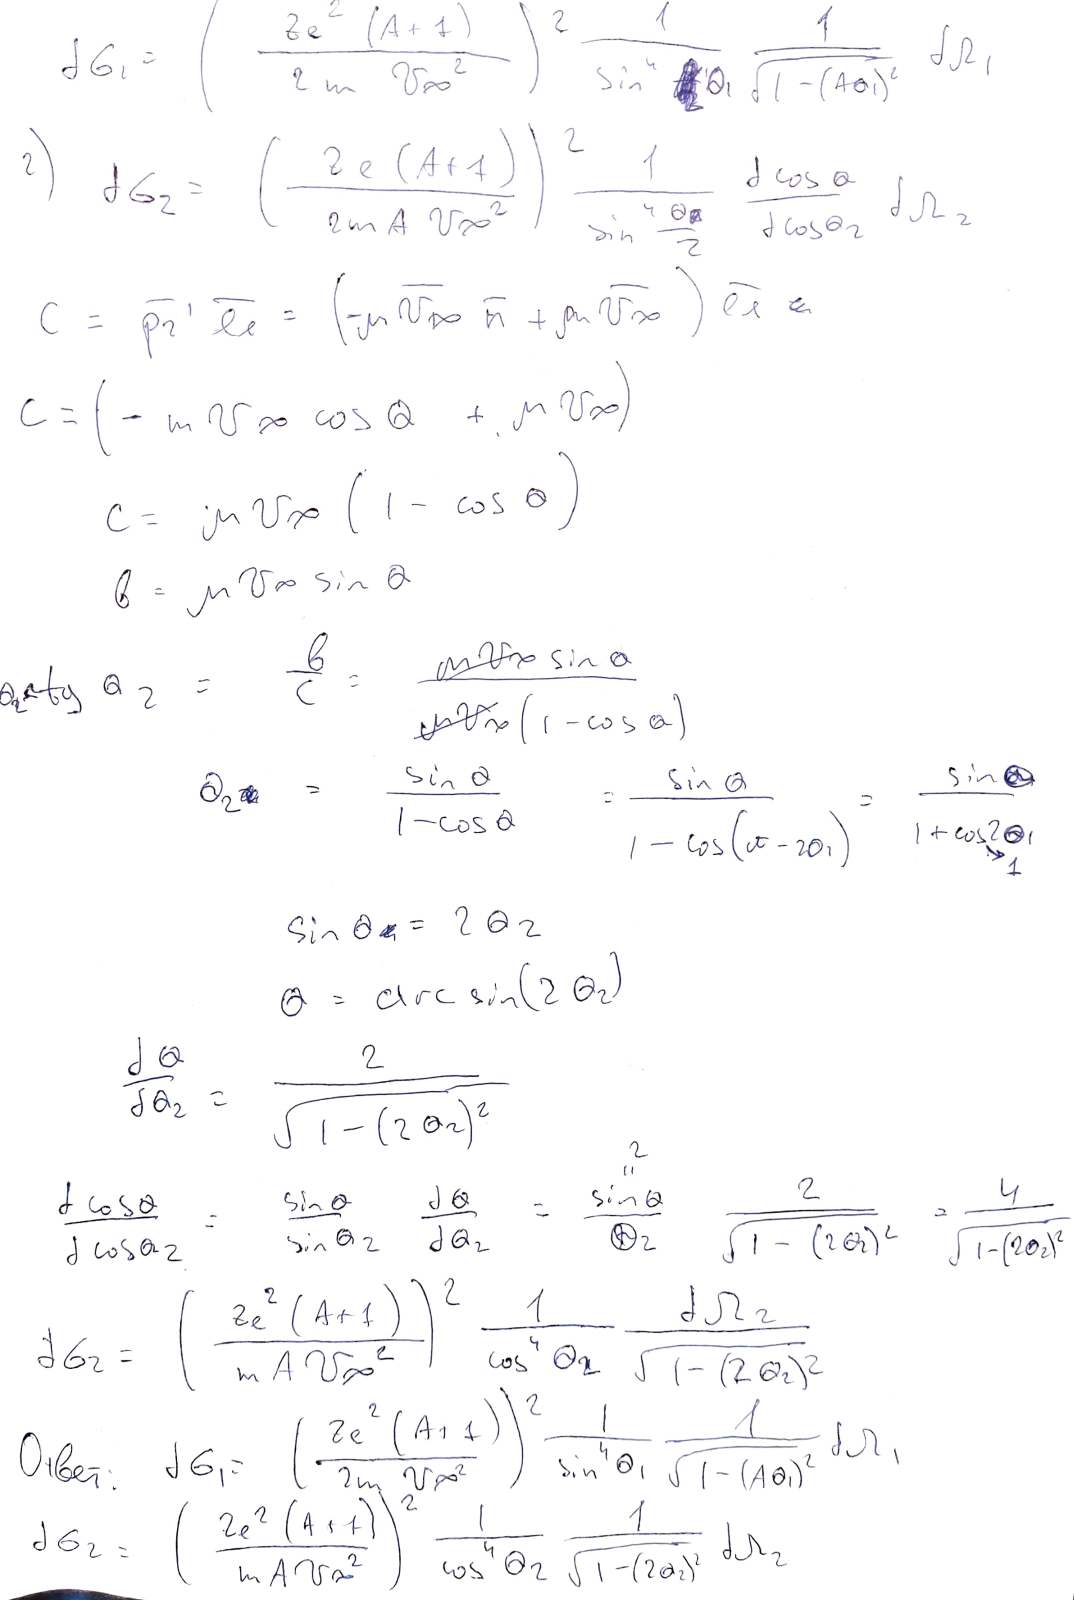 dσ₁ = (Ze²(A+1) / 2m V∞²)² 1/sin⁴ θ₁ 1/√(1-(Aθ₁)²) dΩ₁
2) dσ₂ = (Ze(A+1) / 2mA V∞²)² 1/sin⁴ θ/2 d cosθ/d cosθ₂ dΩ₂
C = p̄₂' ēₓ = (-μ V̄∞ n̄ + μ V̄∞) ēₓ =
C = (- m V∞ cos θ + μ V∞)
C = μ V∞ (1 - cos θ)
b = μ V∞ sin θ
tg θ₂ = b/c = μV∞ sin θ / μV∞ (1-cos θ)
θ₂ = sin θ / 1-cos θ = sin θ / 1-cos(π-2θ₁) = sin θ / 1+cos2θ₁ → 1
sin θ = 2θ₂
θ = arc sin(2θ₂)
dθ/dθ₂ = 2/√(1-(2θ₂)²)
d cosθ/d cosθ₂ = sinθ/sinθ₂ dθ/dθ₂ = sinθ/θ₂ " 2 2/√(1-(2θ₂)²) = 4/√(1-(2θ₂)²)
dσ₂ = (Ze²(A+1) / m A V∞²)² 1/cos⁴ θ₂ dΩ₂/√(1-(2θ₂)²)
Ответ: dσ₁ = (Ze²(A+1) / 2m V∞²)² 1/sin⁴ θ₁ 1/√(1-(Aθ₁)²) dΩ₁
dσ₂ = (Ze²(A+1) / mA V∞²)² 1/cos⁴ θ₂ 1/√(1-(2θ₂)²) dΩ₂